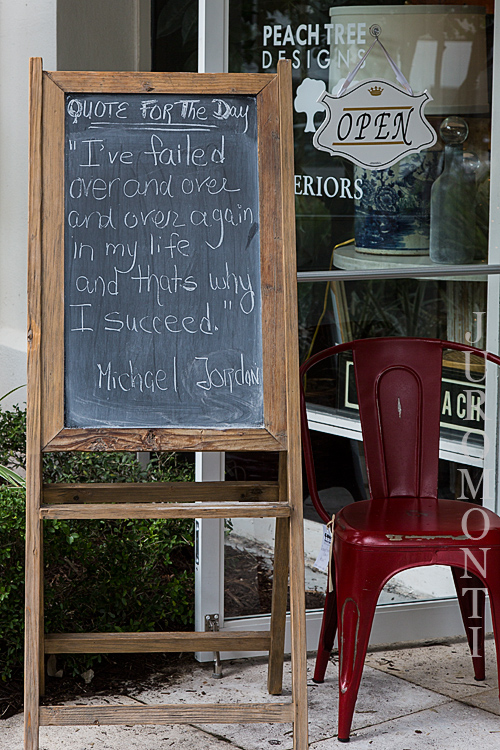 QUOTE FOR THE Day
"I've failed
over and over
and over again
in my life
and thats why
I succeed."
Michael Jordon
PEACH TREE
DESIGNS
OPEN
ERIORS
ACH
JURO MONTI